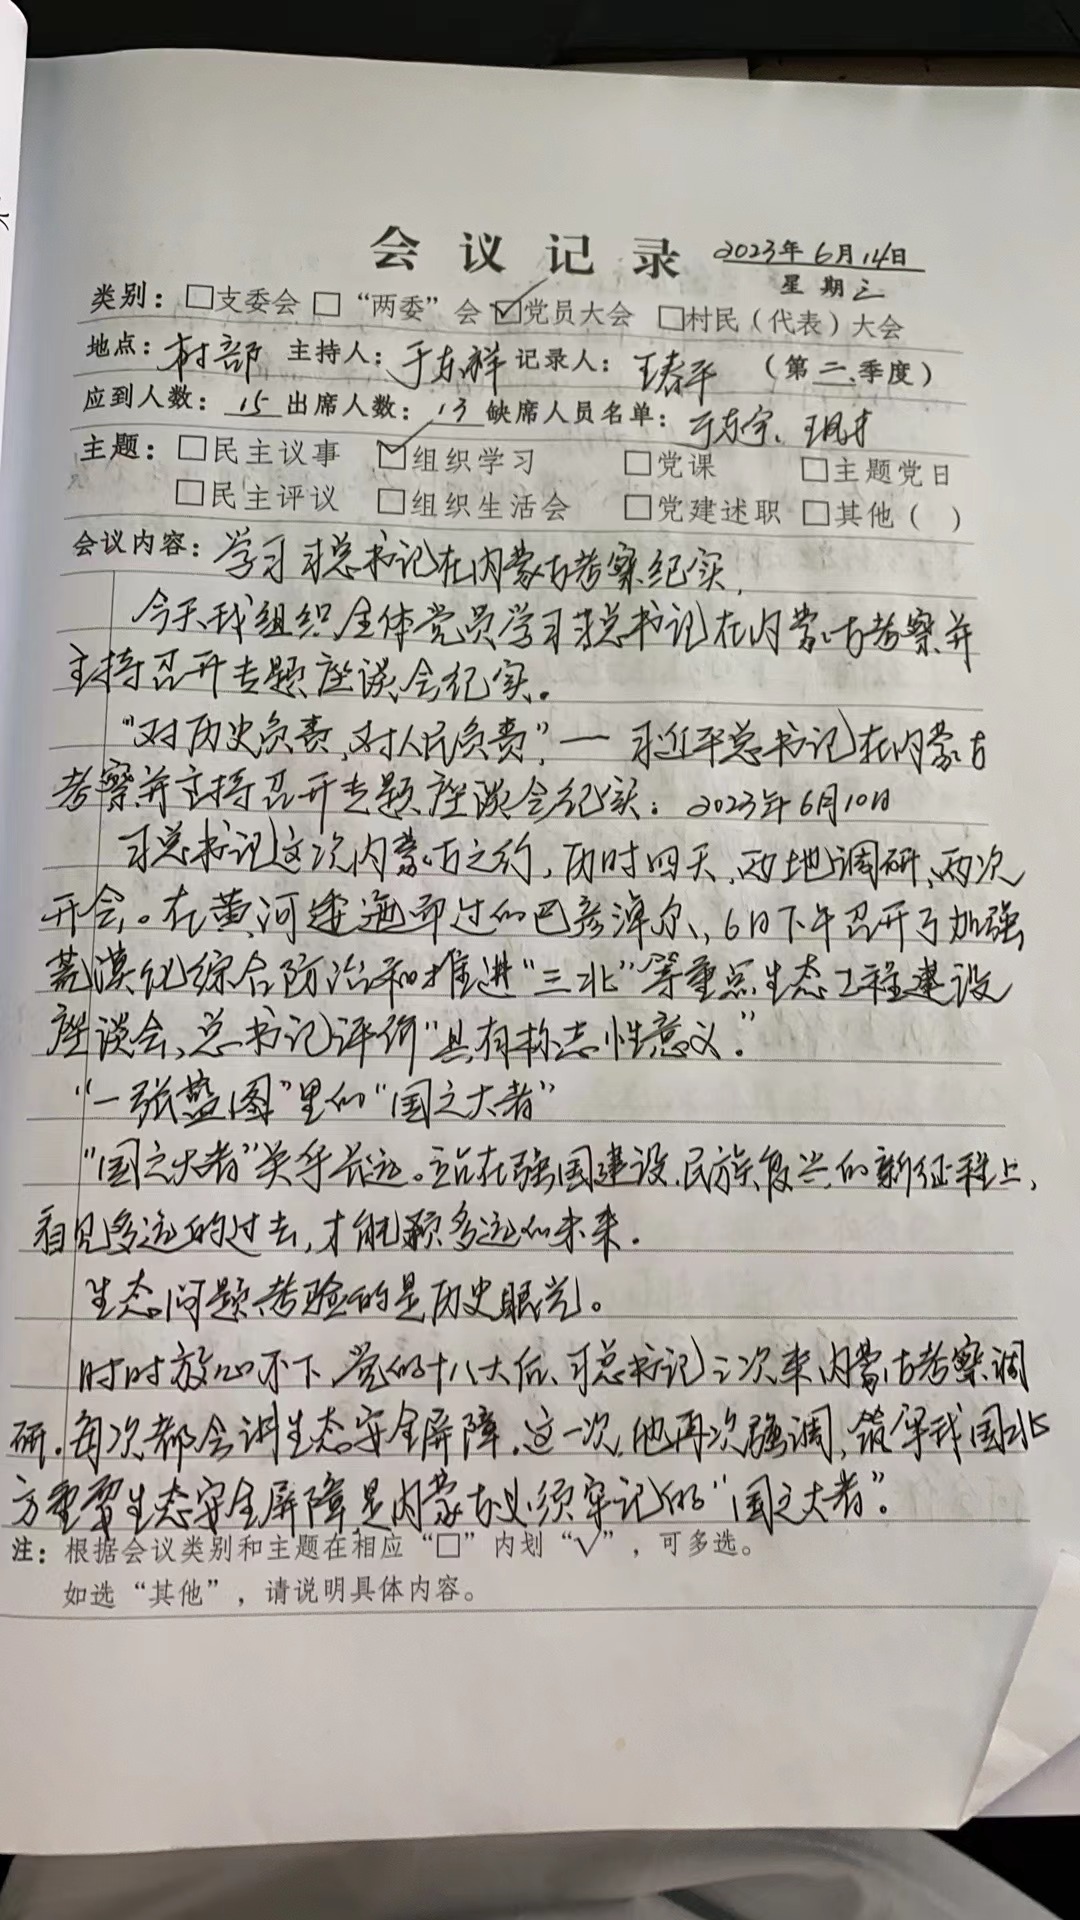 会议记录 2023年6月14日
星期三
类别：□支委会 □“两委”会 ☑党员大会 □村民（代表）大会
地点：村部 主持人：于东祥 记录人：王春平 （第二季度）
应到人数：15 出席人数：13 缺席人员名单：于东宇、王凤才
主题：□民主议事 ☑组织学习 □党课 □主题党日
□民主评议 □组织生活会 □党建述职 □其他（ ）
会议内容：学习习总书记在内蒙古考察纪实，
今天我组织全体党员学习习总书记在内蒙古考察并
主持召开专题座谈会纪实。
“对历史负责，对人民负责”，— 习近平总书记在内蒙古
考察并主持召开专题座谈会纪实：2023年6月10日
习总书记这次内蒙古之行，历时四天，两地调研、两次
开会。在黄河逶迤而过的巴彦淖尔，6日下午召开了加强
荒漠化综合防治和推进“三北”等重点生态工程建设
座谈会、总书记评价“具有标志性意义。”
“一张蓝图”里的“国之大者”
“国之大者”关乎长远。站在强国建设、民族复兴的新征程上，
看见多远的过去，才能预多远的未来。
生态问题、考验的是历史眼光。
时时放心不下，党的十八大后、习总书记三次来内蒙古考察调
研。每次都会讲生态安全屏障。这一次，他再次强调，筑牢我国北
方重要生态安全屏障，是内蒙古必须牢记的“国之大者”。
注：根据会议类别和主题在相应“□”内划“√”，可多选。
如选“其他”，请说明具体内容。